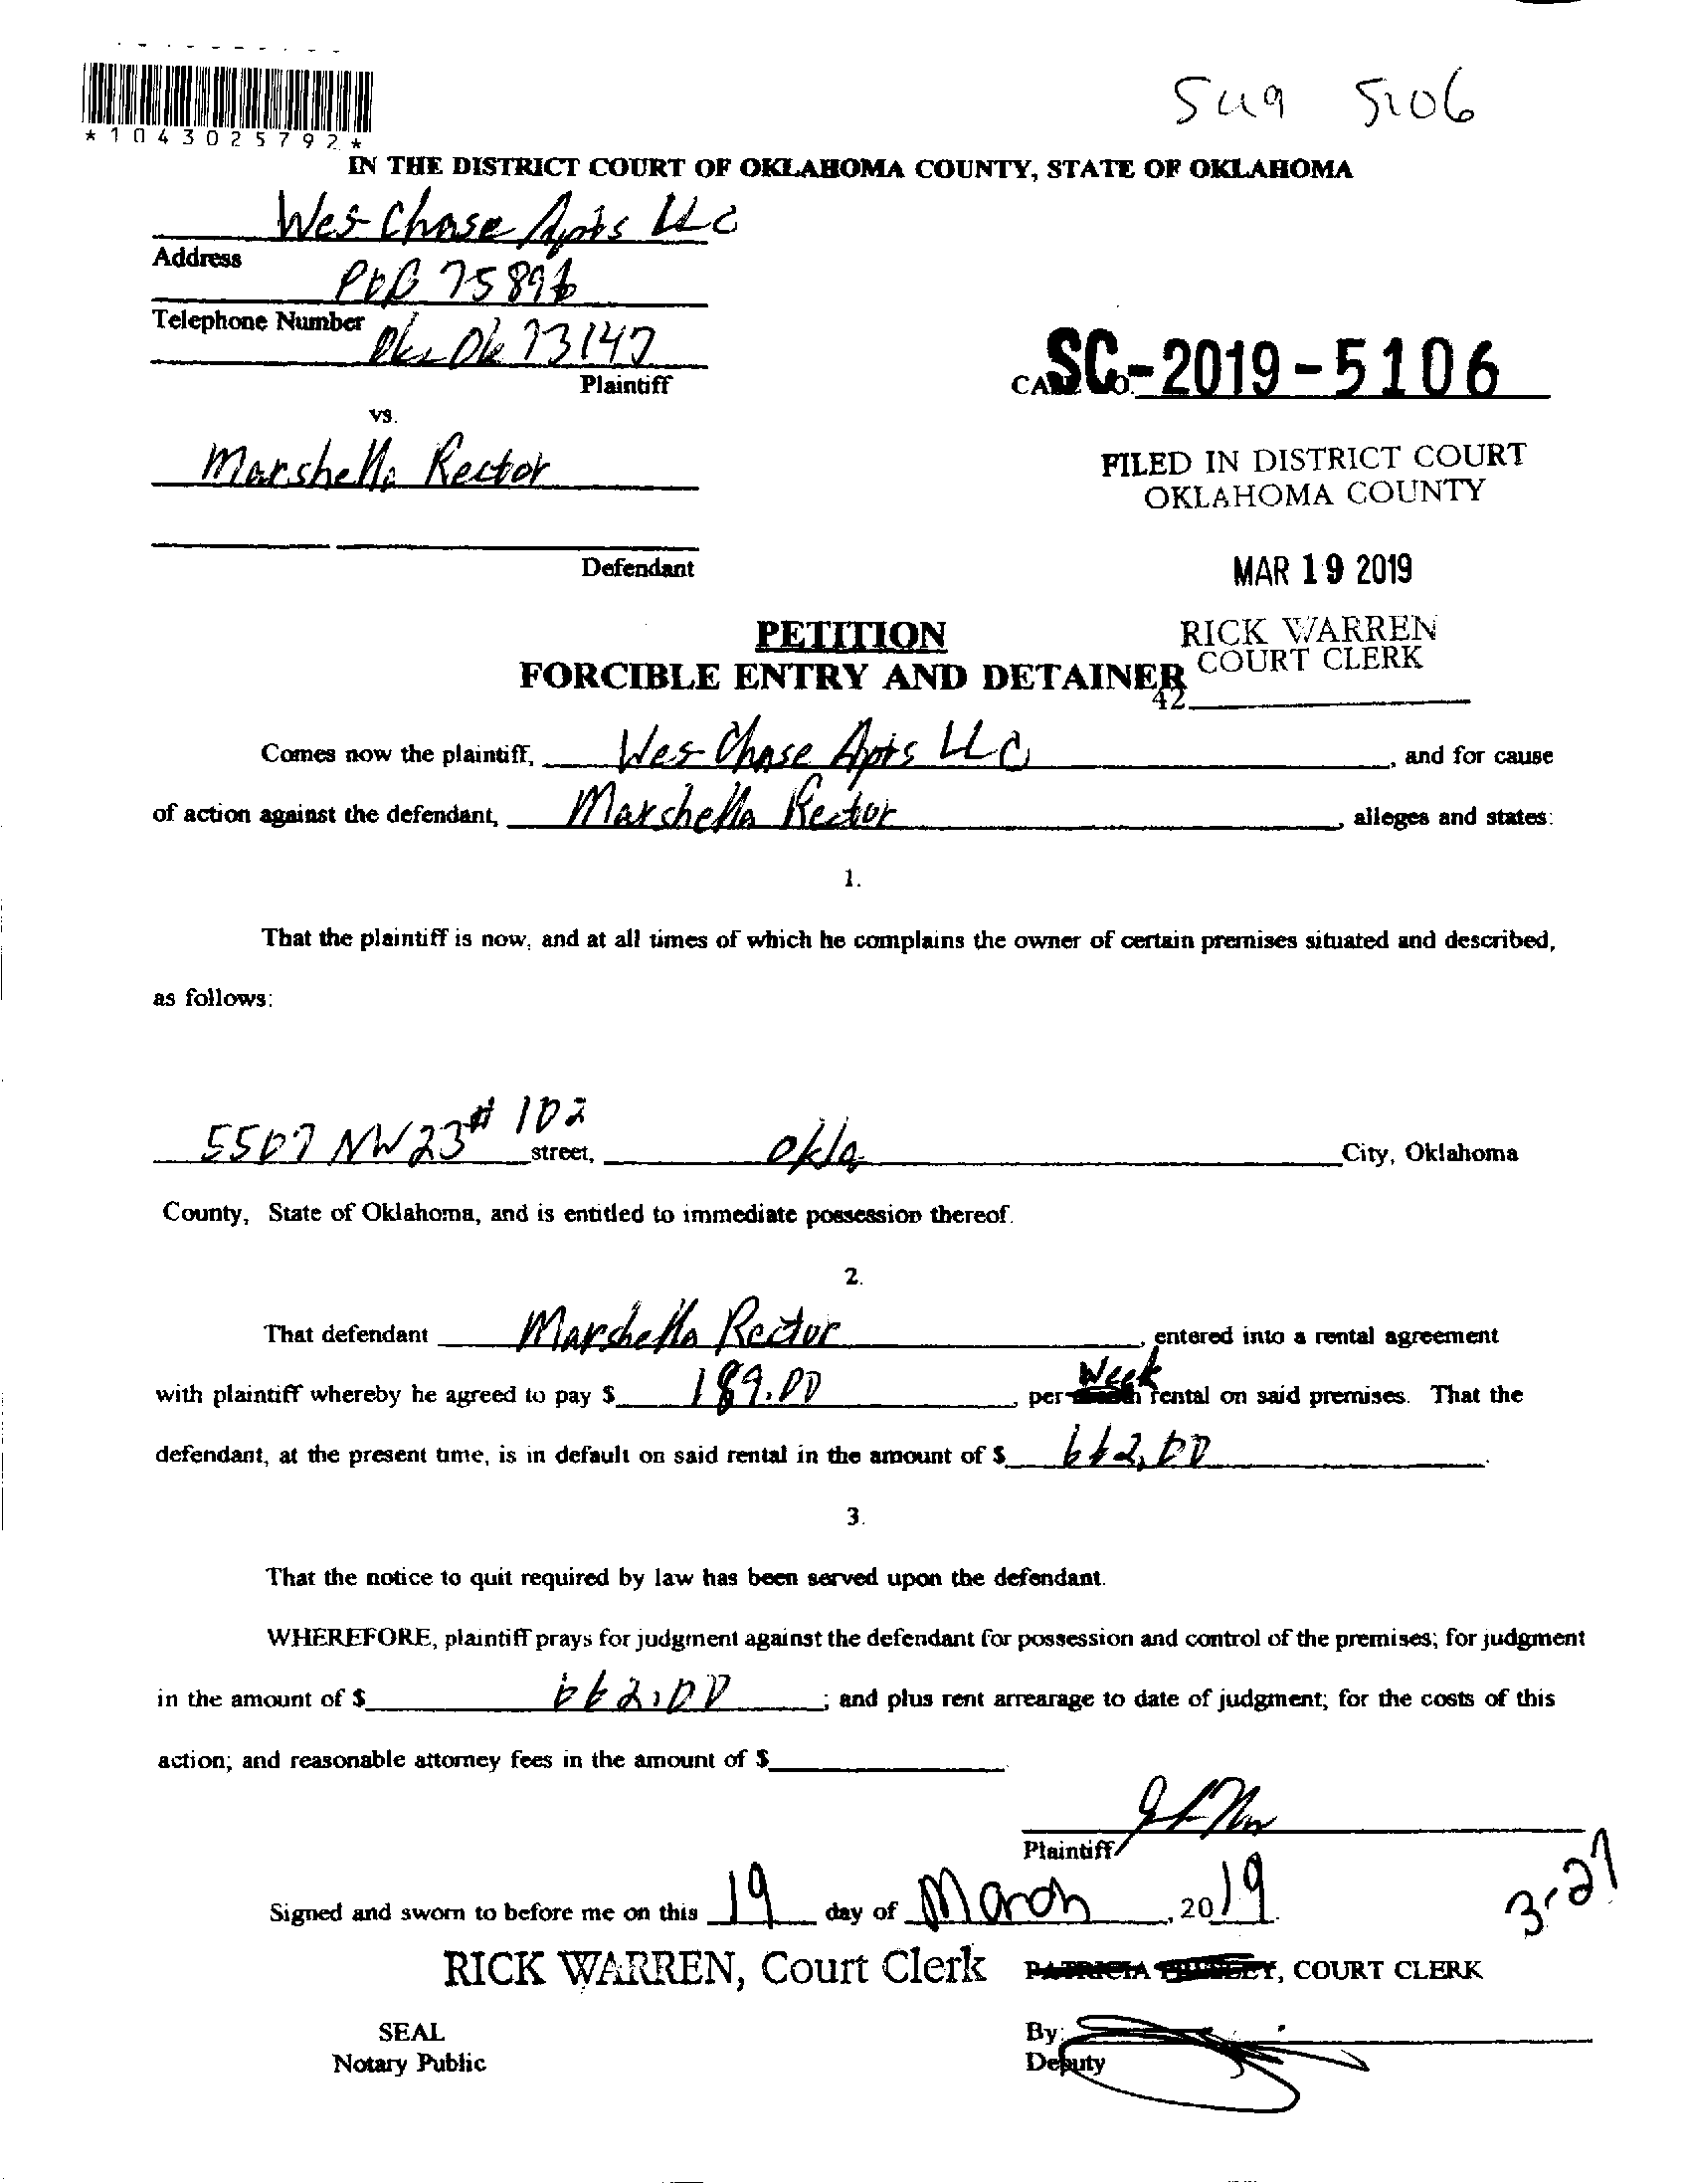 Sug 5106
*1043025792*
IN THE DISTRICT COURT OF OKLAHOMA COUNTY, STATE OF OKLAHOMA
Wes Chase Apts LLC
Address
POB 75896
Telephone Number
Okc Ok 73147
Plaintiff
SC-2019-5106
vs.
Marshella Rector
FILED IN DISTRICT COURT
OKLAHOMA COUNTY
Defendant
MAR 19 2019
PETITION
RICK WARREN
COURT CLERK
FORCIBLE ENTRY AND DETAINER
42
Comes now the plaintiff, Wes Chase Apts LLC, and for cause
of action against the defendant, Marshella Rector, alleges and states:
1.
That the plaintiff is now, and at all times of which he complains the owner of certain premises situated and described,
as follows:
5507 NW 23 # 102 street, okla City, Oklahoma
County, State of Oklahoma, and is entitled to immediate possession thereof.
2.
That defendant Marshella Rector, entered into a rental agreement
with plaintiff whereby he agreed to pay $ 189.00, per Week rental on said premises. That the
defendant, at the present time, is in default on said rental in the amount of $ 662.00.
3.
That the notice to quit required by law has been served upon the defendant.
WHEREFORE, plaintiff prays for judgment against the defendant for possession and control of the premises; for judgment
in the amount of $ 662.00; and plus rent arrearage to date of judgment; for the costs of this
action; and reasonable attorney fees in the amount of $
Plaintiff
Signed and sworn to before me on this 19 day of March, 2019.
3-27
RICK WARREN, Court Clerk PATRICIA, COURT CLERK
SEAL
Notary Public
By:
Deputy